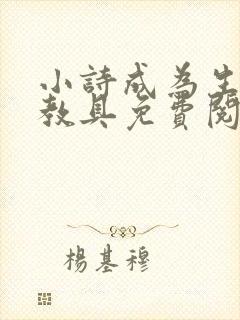 小詩成為生
教具免費閱
楊基穆